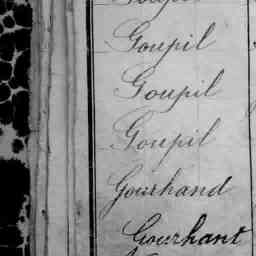 Goupil
Goupil
Goupil
Gourhand
Gourhant